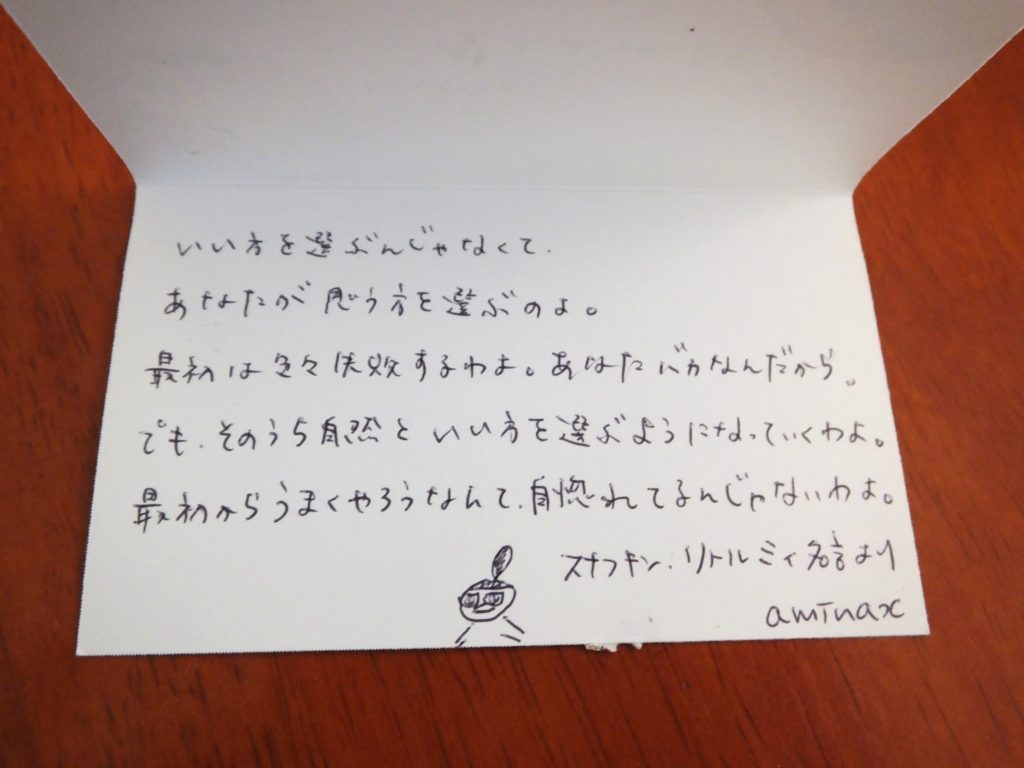 いい方を選ぶんじゃなくて.
あなたが思う方を選ぶのよ。
最初は色々失敗するわよ。あなたバカなんだから。
でも、そのうち自然といい方を選ぶようになっていくわよ。
最初からうまくやろうなんて、自惚れてるんじゃないわよ。
スナフキン.リトルミィ名言より
aminax